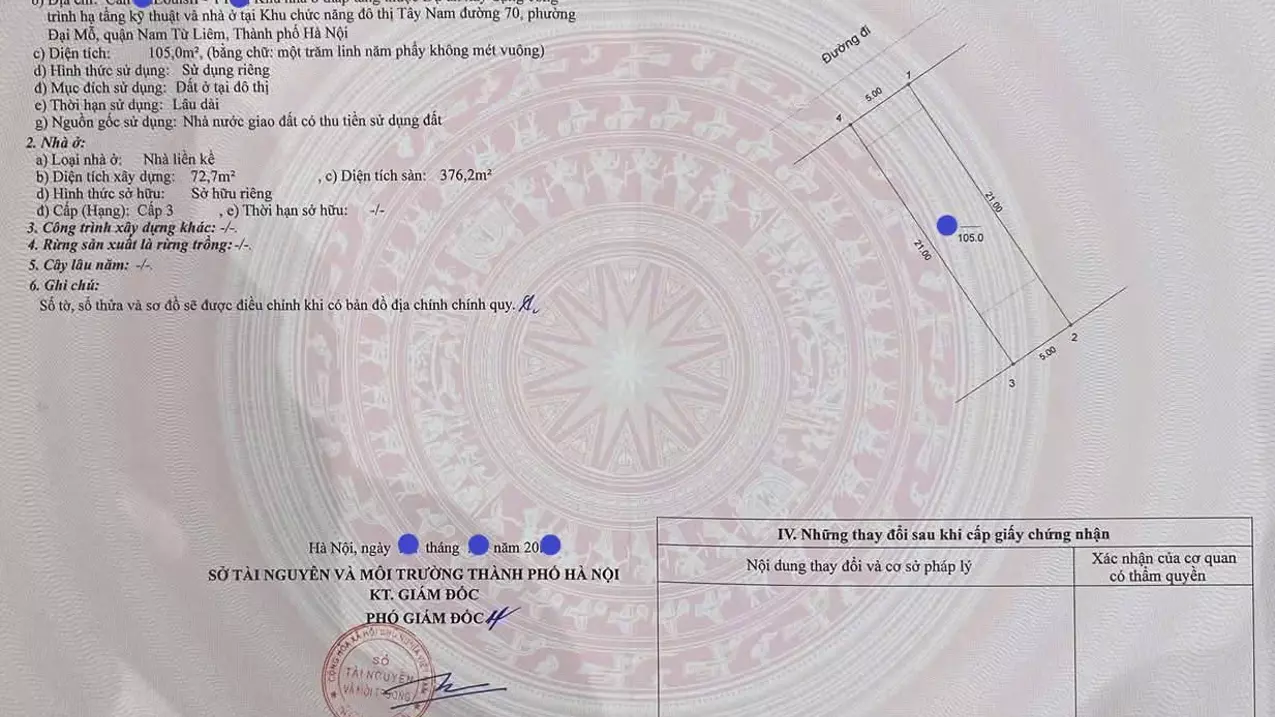 trình hạ tầng kỹ thuật và nhà ở tại Khu chức năng đô thị Tây Nam đường 70, phường
Đại Mỗ, quận Nam Từ Liêm, Thành phố Hà Nội
c) Diện tích: 105,0m², (bằng chữ: một trăm linh năm phẩy không mét vuông)
d) Hình thức sử dụng: Sử dụng riêng
đ) Mục đích sử dụng: Đất ở tại đô thị
e) Thời hạn sử dụng: Lâu dài
g) Nguồn gốc sử dụng: Nhà nước giao đất có thu tiền sử dụng đất
2. Nhà ở:
a) Loại nhà ở: Nhà liền kề
b) Diện tích xây dựng: 72,7m² , c) Diện tích sàn: 376,2m²
d) Hình thức sở hữu: Sở hữu riêng
đ) Cấp (Hạng): Cấp 3 , e) Thời hạn sở hữu: -/-
3. Công trình xây dựng khác: -/-.
4. Rừng sản xuất là rừng trồng: -/-.
5. Cây lâu năm: -/-.
6. Ghi chú:
Số tờ, số thửa và sơ đồ sẽ được điều chỉnh khi có bản đồ địa chính chính quy.
Đường đi
1
5.00
4
21.00
105.0
21.00
2
5.00
3
Hà Nội, ngày tháng năm 20
SỞ TÀI NGUYÊN VÀ MÔI TRƯỜNG THÀNH PHỐ HÀ NỘI
KT. GIÁM ĐỐC
PHÓ GIÁM ĐỐC
SỞ
TÀI NGUYÊN
VÀ MÔI TRƯỜNG
IV. Những thay đổi sau khi cấp giấy chứng nhận
Nội dung thay đổi và cơ sở pháp lý
Xác nhận của cơ quan
có thẩm quyền